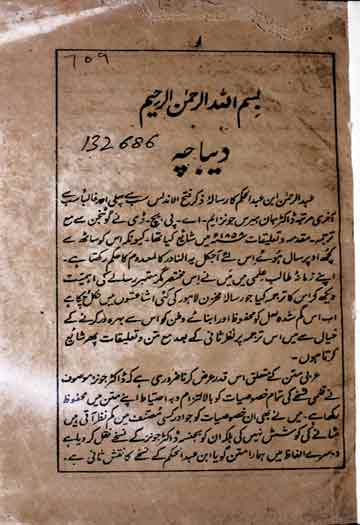 709
بسم اللہ الرحمن الرحیم
132686
دیباچہ
عبدالرحمٰن ابن عبدالحکم کا رسالہ ذکر فتح الاندلس سب سے پہلی اور غالباً سب سے
آخری مرتبہ ڈاکٹر جان ہیرس جونز ایم۔ اے۔ پی۔ ایچ۔ ڈی نے گوٹنجن سے مع
ترجمہ، مقدمہ و تعلیقات ۱۸۵۸ء میں شائع کیا تھا۔ چونکہ اس کو ساٹھ سے
کچھ اوپر سال ہوئے، اس لئے آجکل یہ النادر کالمعدوم کا حکم رکھتا ہے۔
اپنے زمانۂ طالب علمی میں میں نے اس مختصر مگر معتبر رسالے کی اہمیت
دیکھ کر اس کا ترجمہ کیا جو رسالہ مخزن لاہور کی کئی اشاعتوں میں نکل چکا ہے
اب اس گم شدہ اصل کو محفوظ اور ابنائے وطن کو اس سے بہرہ ور کرنے کے
خیال سے میں اس ترجمہ پر نظر ثانی کے بعد مع متن و تعلیقات پھر شائع
کرتا ہوں۔
عربی متن کے متعلق اس قدر عرض کرنا ضروری ہے کہ ڈاکٹر جونز موصوف
نے قلمی نسخے کی تمام خصوصیات کو بالالتزام و بہ احتیاط اپنے متن میں محفوظ
رکھا ہے۔ میں نے بھی ان خصوصیات کو جو اور کسی مصنف میں کم نظر آتی ہیں
مٹانے کی کوشش نہیں کی بلکہ ان کو بجنسہٖ ڈاکٹر جونز کے نسخے سے نقل کر دیا ہے
دوسرے الفاظ میں ہمارا متن گویا ابن عبدالحکم کے نسخے کا نقش ثانی ہے۔